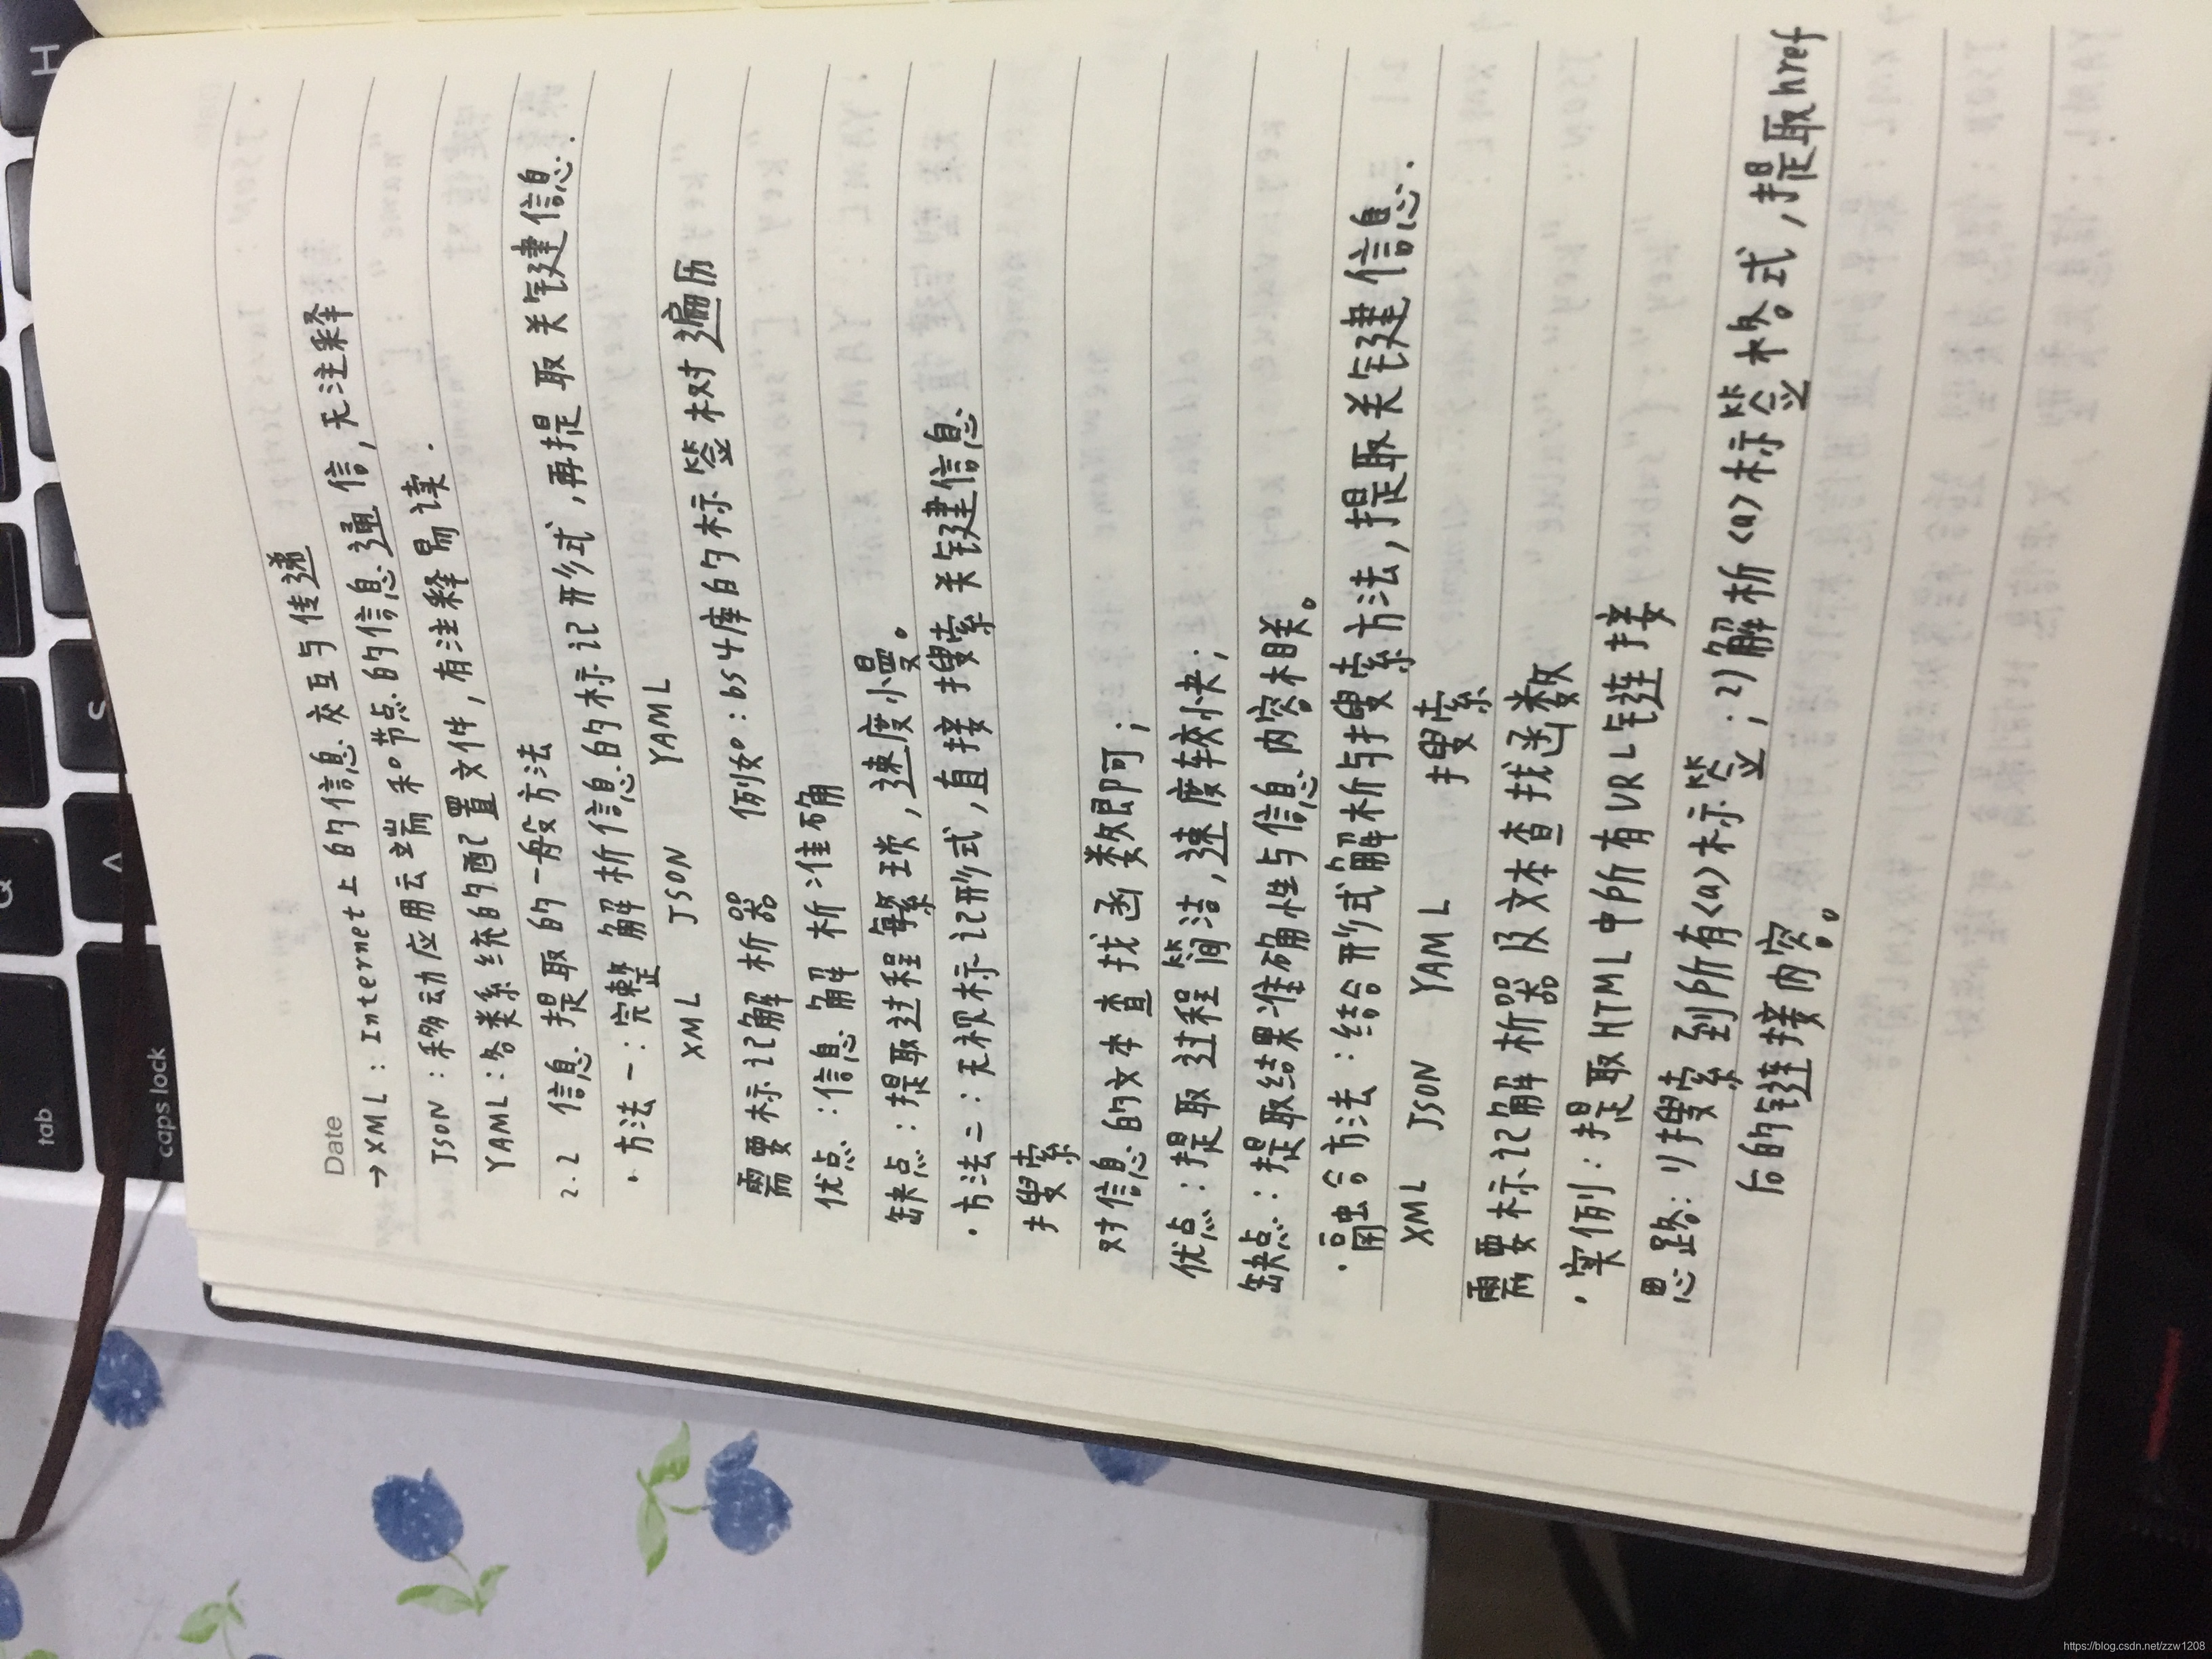 Date
→ XML：Internet上的信息交互与传递
JSON：移动应用云端和节点的信息通信，无注释
YAML：各类系统的配置文件，有注释易读.
2.2 信息提取的一般方法
·方法一：完整解析信息的标记形式，再提取关键信息.
XML JSON YAML
需要标记解析器 例如：bs4库的标签树遍历
优点：信息解析准确
缺点：提取过程繁琐，速度慢。
·方法二：无视标记形式，直接搜索关键信息
搜索
对信息的文本查找函数即可；
优点：提取过程简洁，速度较快；
缺点：提取结果准确性与信息内容相关。
·融合方法：结合形式解析与搜索方法，提取关键信息.
XML JSON YAML 搜索
需要标记解析器及文本查找函数
·实例：提取HTML中所有URL链接
思路：1)搜索到所有<a>标签；2)解析<a>标签格式，提取href
后的链接内容。
tab
caps lock
Q
A
S
H
https://blog.csdn.net/zzw1208